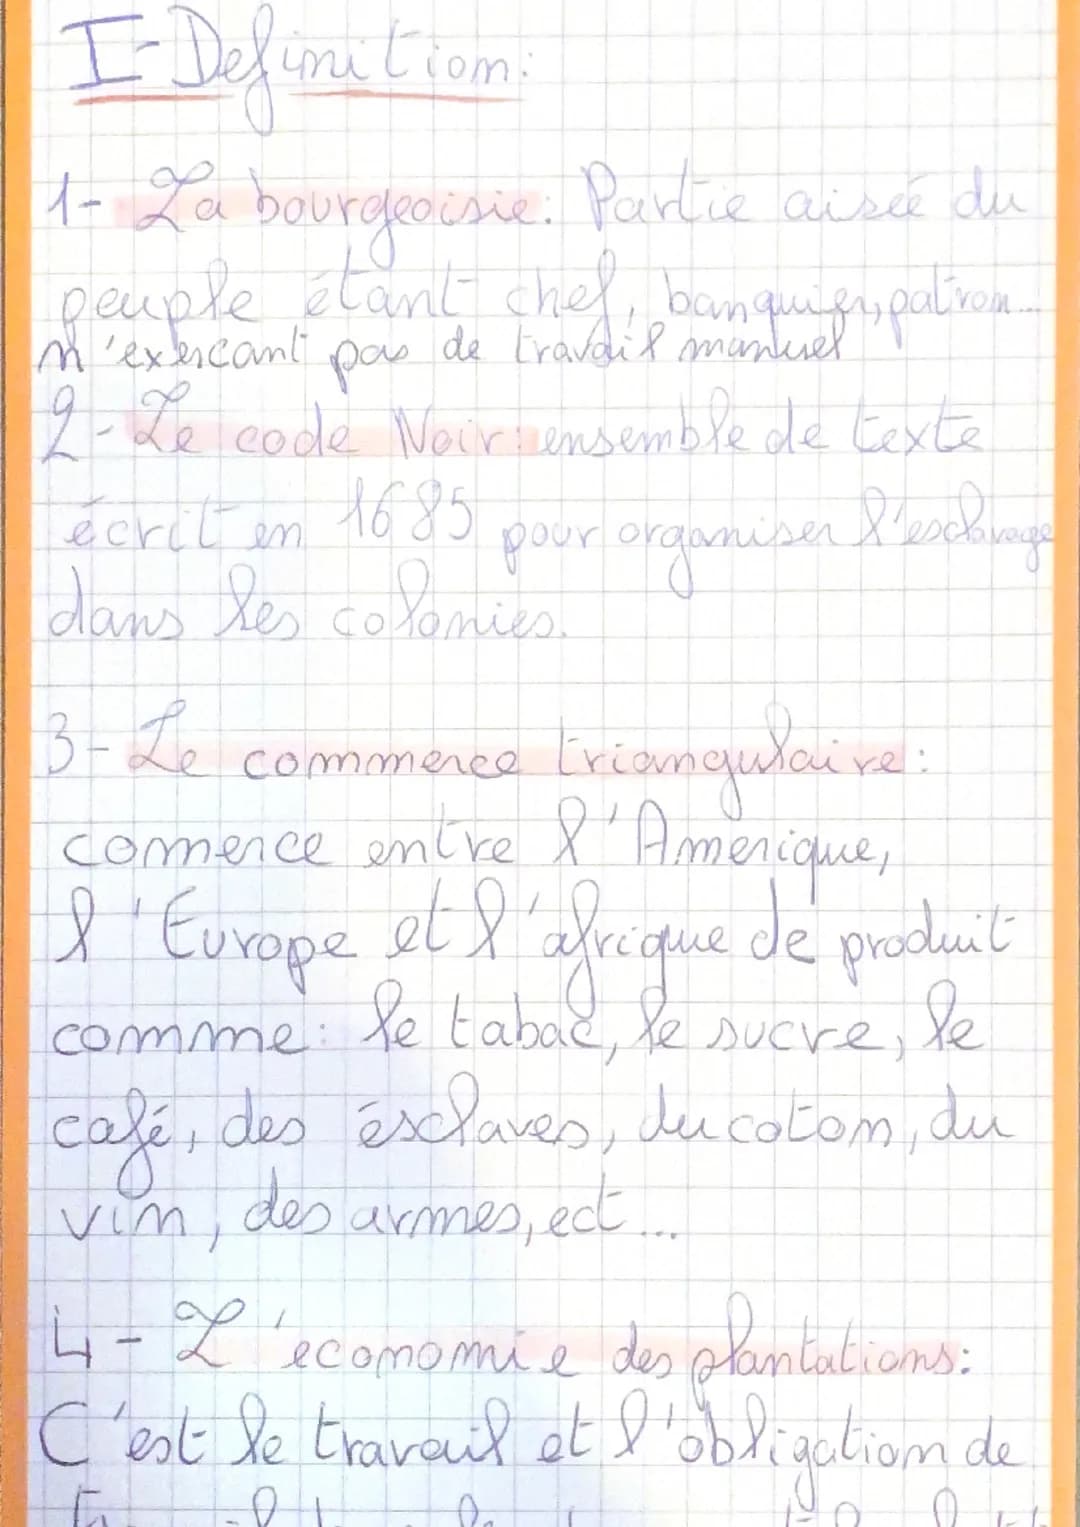 I-Definition:
1- La bourgeoisie: Partie aisée du
peuple étant chef, banquier, patron...
n'exercant pas de travail manuel
2-Le code Noir: ensemble de texte
écrit en 1685 pour organiser l'esclavage
dans les colonies.
3- Le commerce triangulaire:
commerce entre l'Amerique,
l'Europe et l'afrique de produit
comme: le tabac, le sucre, le
café, des ésclaves, du coton, du
vin, des armes, ect...
4- L'économie des plantations:
C'est le travail et l'obligation de